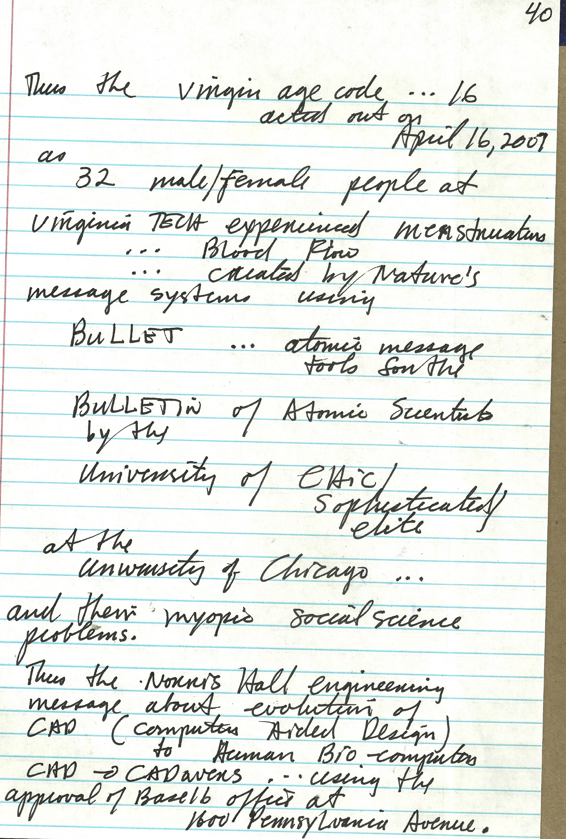 40
Thus the virgin age code ... 16
acted out on
April 16, 2007
as
32 male/female people at
Virginia TECH experienced menstruation
... Blood Flow
... created by Nature's
message systems using
BULLET ... atomic message
tools for the
BULLETIN of Atomic Scientists
by the
University of CHic/
Sophisticated/
elite
at the
University of Chicago ...
and their myopic social science
problems.
Thus the Norris Hall engineering
message about evolution of
CAD (Computer Aided Design)
to Human Bio-computer
CAD → CADavers ... using the
approval of Base16 office at
1600 Pennsylvania Avenue.